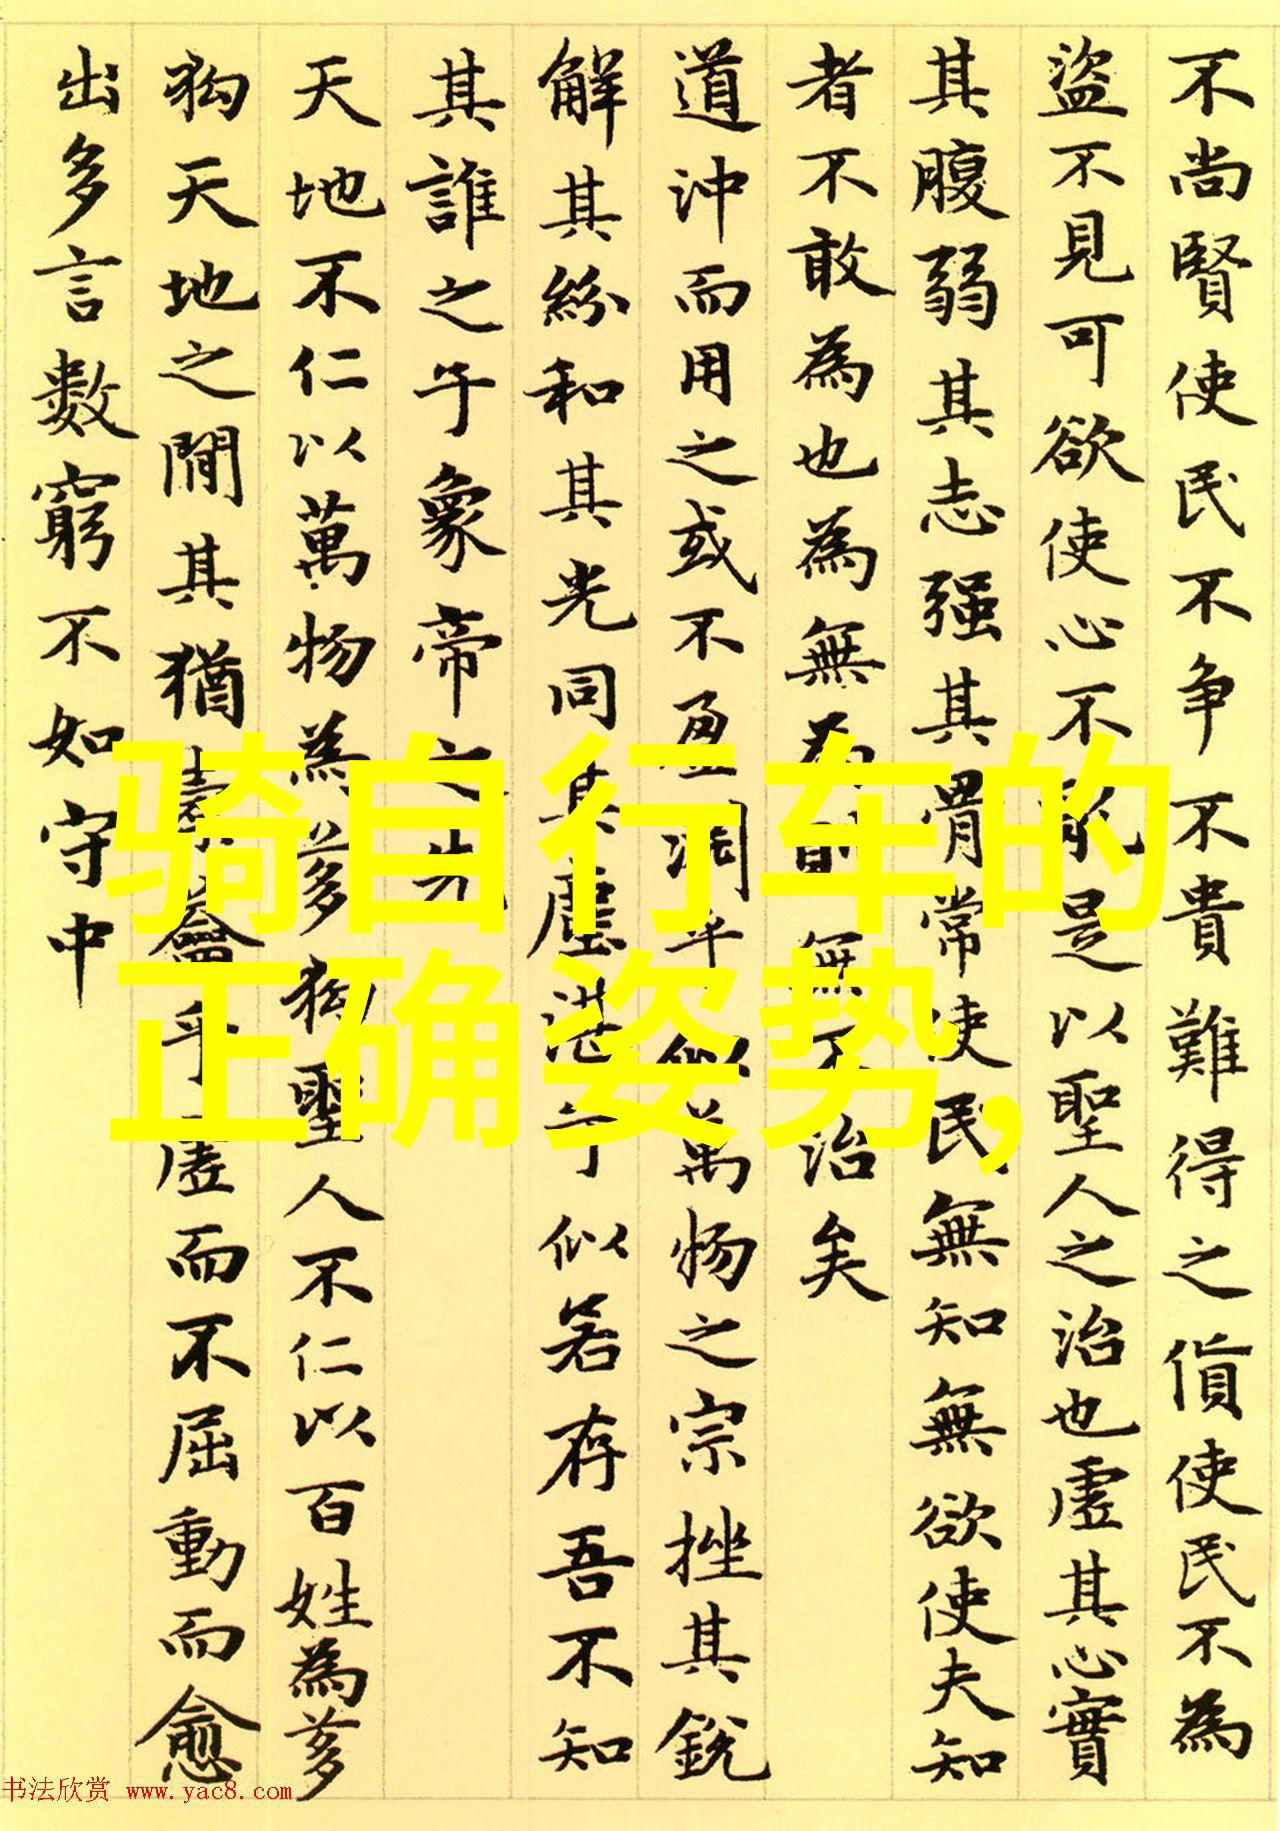 不尚賢使民不争不貴難得之貨使民不為
盜不見可欲使心不亂是以聖人之治也虛其心實
其腹弱其志强其骨常使民無知無欲使夫知
者不敢為也為無為則無不治矣
道沖而用之或不盈淵乎似萬物之宗挫其銳
解其紛和其光同其塵湛乎似若存吾不知
其誰之子象帝之先
天地不仁以萬物為芻狗聖人不仁以百姓為芻
狗天地之間其猶橐龠乎虛而不屈動而愈
出多言數窮不如守中
骑自行车的
正确姿势,
书法欣赏 www.yac8.com